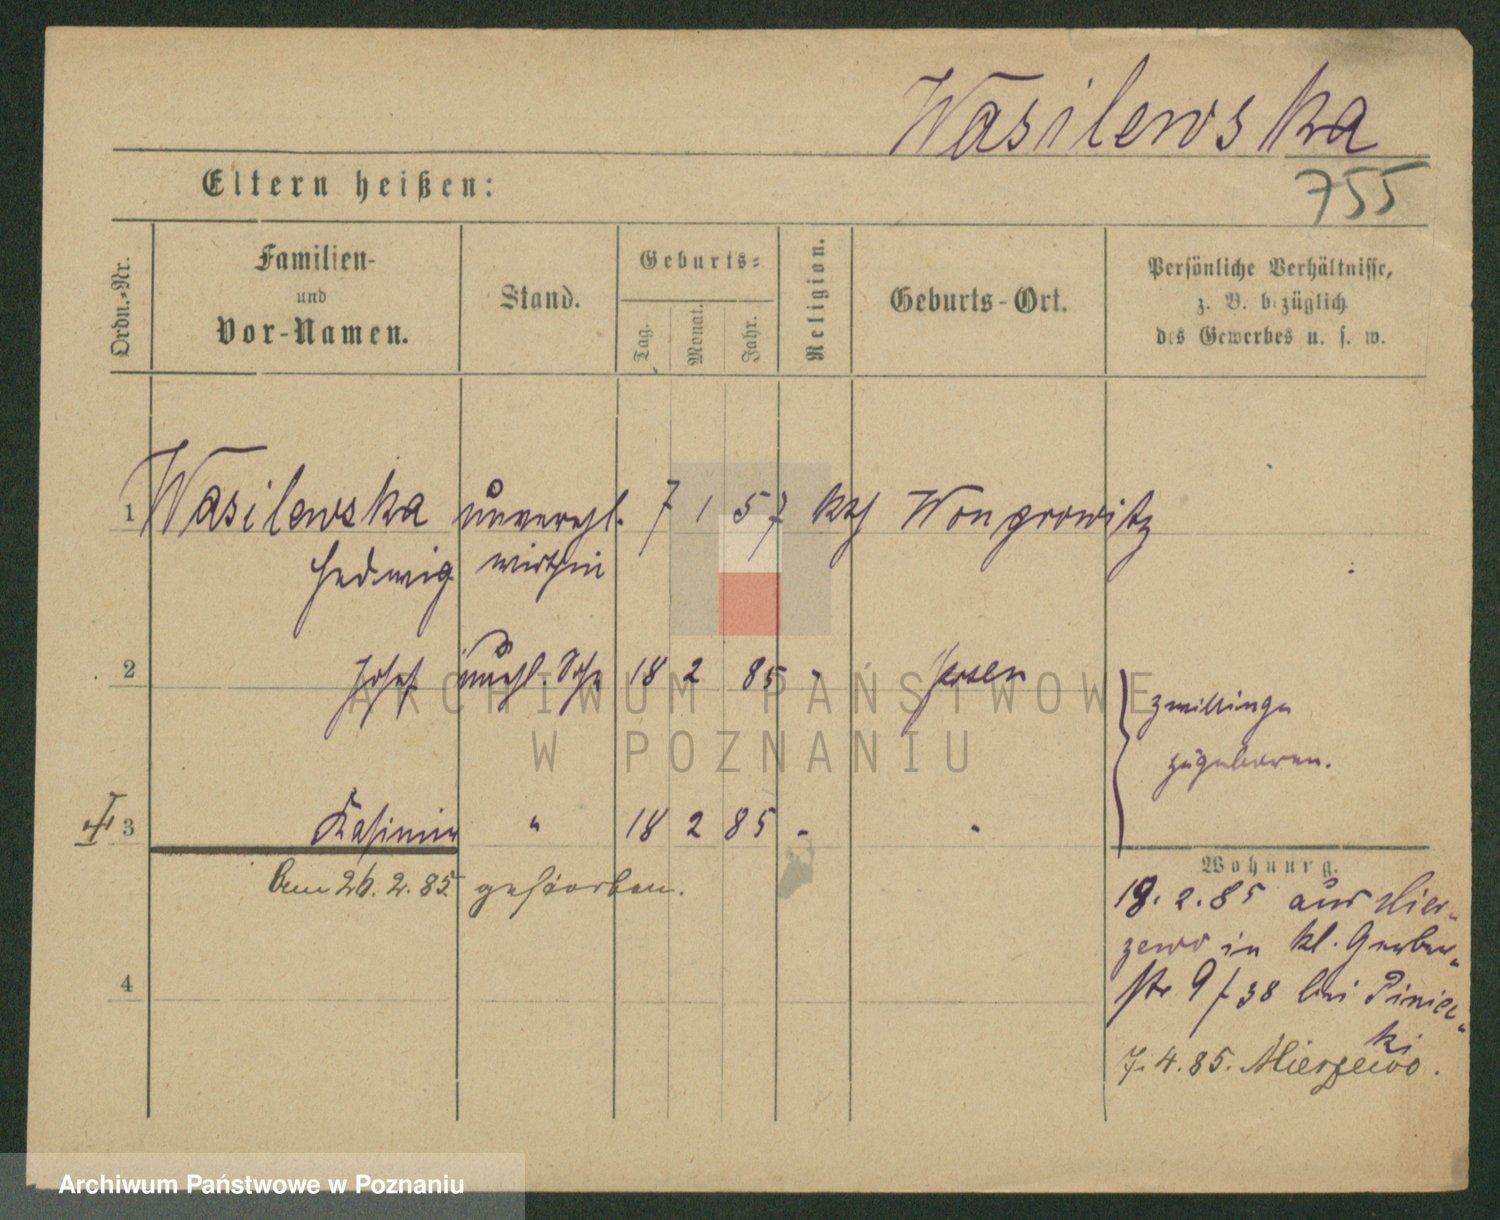 Wasilewska
755
Eltern heißen:
Ordn.-Nr.
Familien-
und
Vor-Namen.
Stand.
Geburts-
Tag.
Monat.
Jahr.
Religion.
Geburts-Ort.
Persönliche Verhältnisse,
z. B. bezüglich
des Gewerbes u. s. w.
1 Wasilewska unverehl. 7 1 57 kth Wongrowitz
Hedwig wirthin
2 Josef unehl. Sohn 18 2 85 " Posen
Zwillinge
zugeboren.
3 Kasimir " 18 2 85 " "
am 26.2.85 gestorben.
Wohnung.
19.2.85 aus Mier-
zewo in kl. Gerber-
str 9 / 38 bei Piniec-
ki
7.4.85. Mierzewo.
4
ARCHIWUM PAŃSTWOWE
W POZNANIU
Archiwum Państwowe w Poznaniu